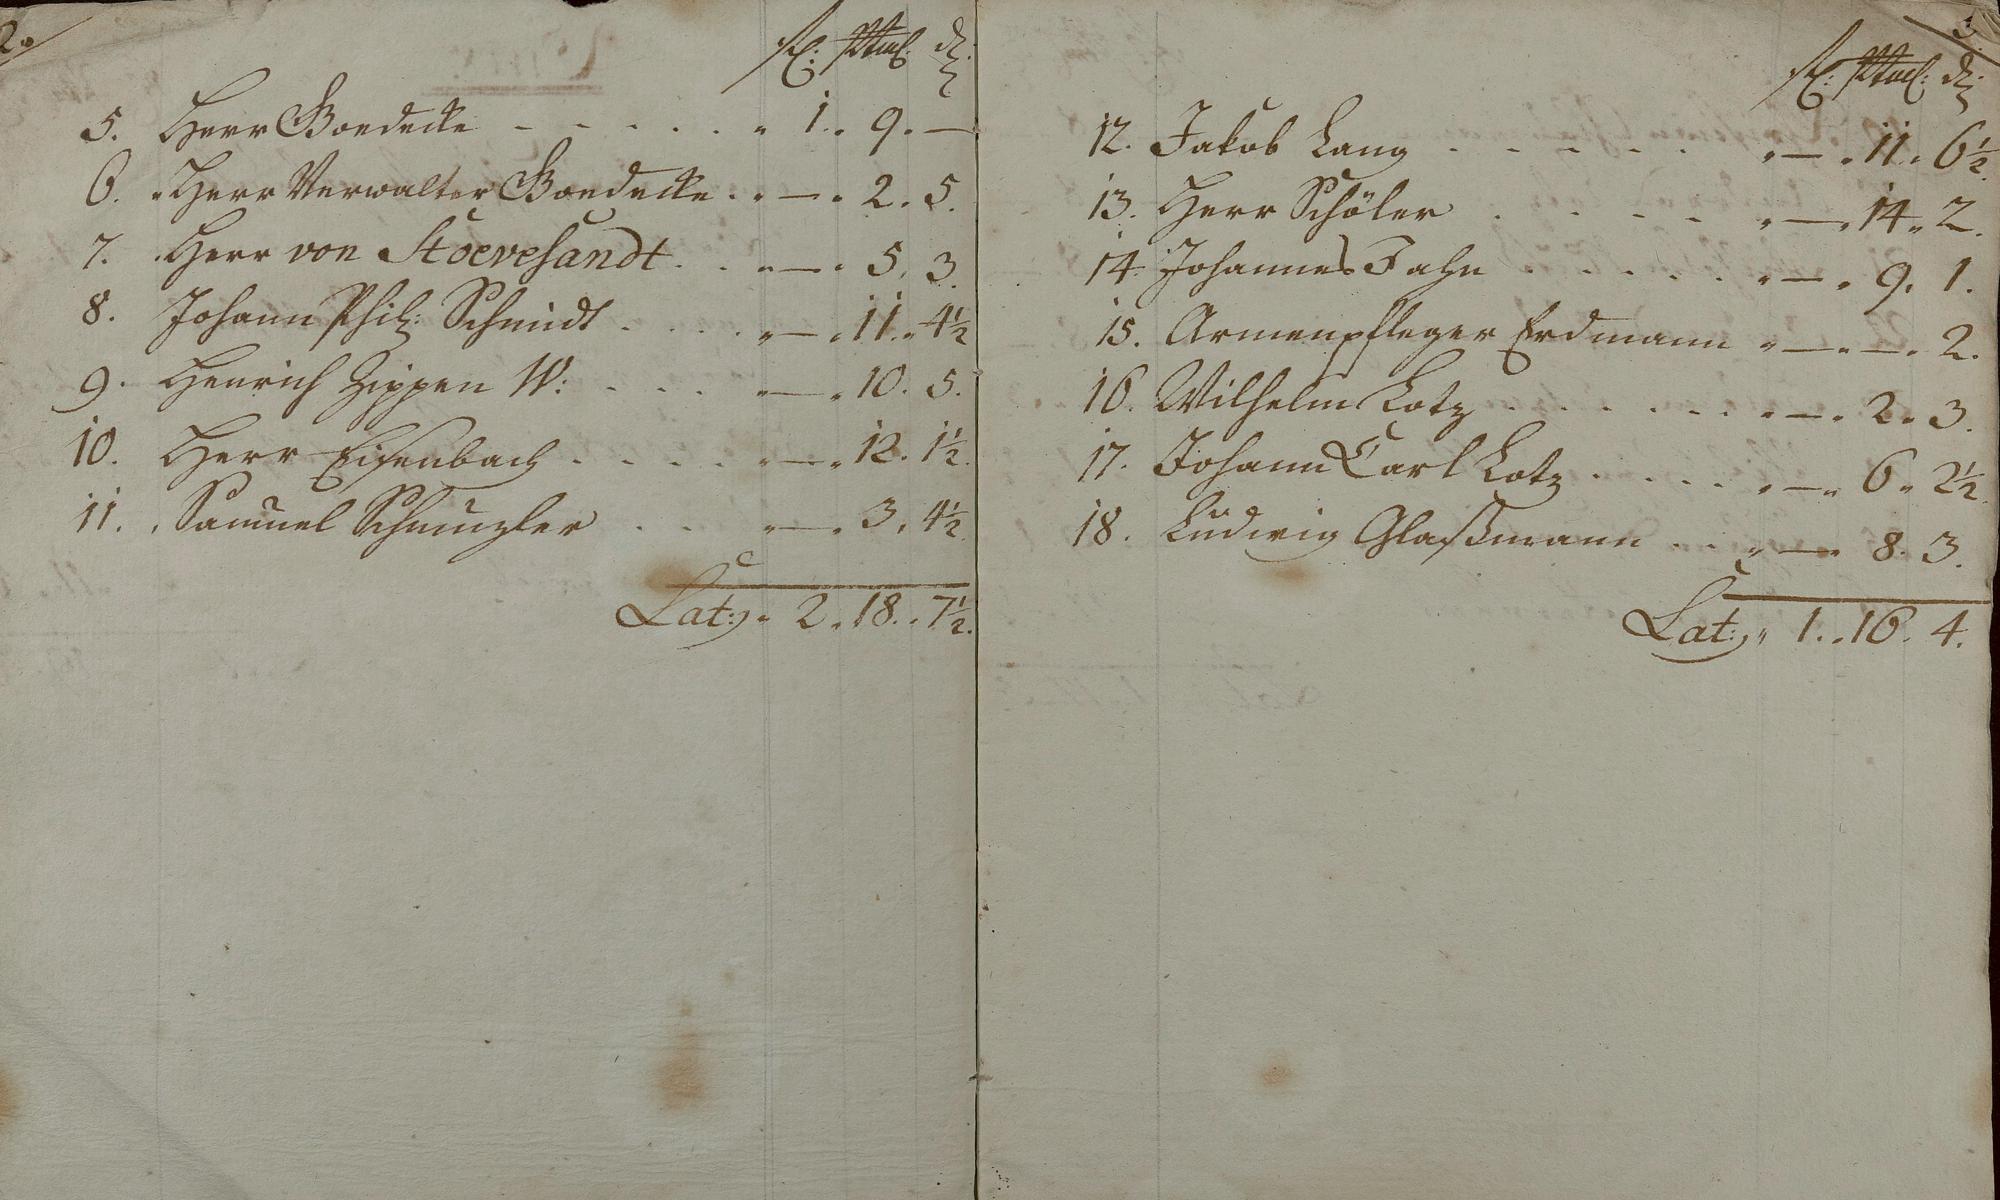 2.
5. Herr Boedeke - - - - - - " 1. " 9. —
6. Herr Verwalter Boedeke . " — " 2. 5.
7. Herr von Stoevesandt . . " — " 5. 3.
8. Johann Phil: Schmidt . . . . " — " 11. " 4½
9. Henrich Zippen W: . . . . " — " 10. 5.
10. Herr Eisenbach . . . . . " — " 12. 1½.
11. Samuel Schmuzler . . . " — " 3. 4½.
Lat: " 2. " 18. . 7½.
3.
12. Jakob Lang . . . . . . " — " 11. " 6½.
13. Herr Schöler . . . . " — " 14. " 2.
14. Johannes Fahn . . . . . . " — " 9. 1.
15. Armenpfleger Erdmann " — " — " 2.
16. Wilhelm Lotz . . . . . . . " — " 2. " 3.
17. Johann Carl Lotz . . . . . " — " 6 " 2½
18. Ludwig Glaßmann . . . " — " 8. 3.
Lat: " 1. . 16. 4.